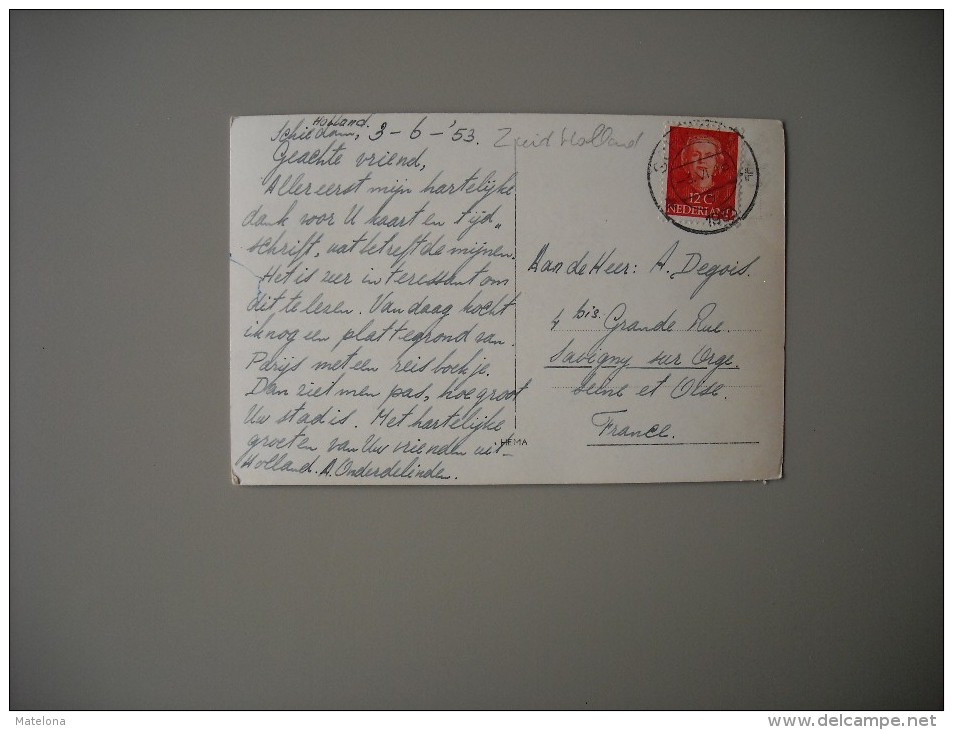 Holland.
Schiedam, 3-6-'53. Zuid Holland
Geachte vriend,
Allereerst mijn hartelijke
dank voor U kaart en tijd„
schrift, wat betreft de mijnen.
Het is zeer interessant om
dit te lezen. Vandaag kocht
ik nog een plattegrond van
Parijs met een reisboekje.
Dan ziet men pas, hoe groot
Uw stad is. Met hartelijke
groeten van Uw vrienden uit
Holland. A. Onderdelinden.
HEMA
12 C
NEDERLAND
Aan de Heer: A. Degois.
4 bis. Grande Rue.
Savigny sur Orge.
Seine et Oise.
France.
Matelona
www.delcampe.net